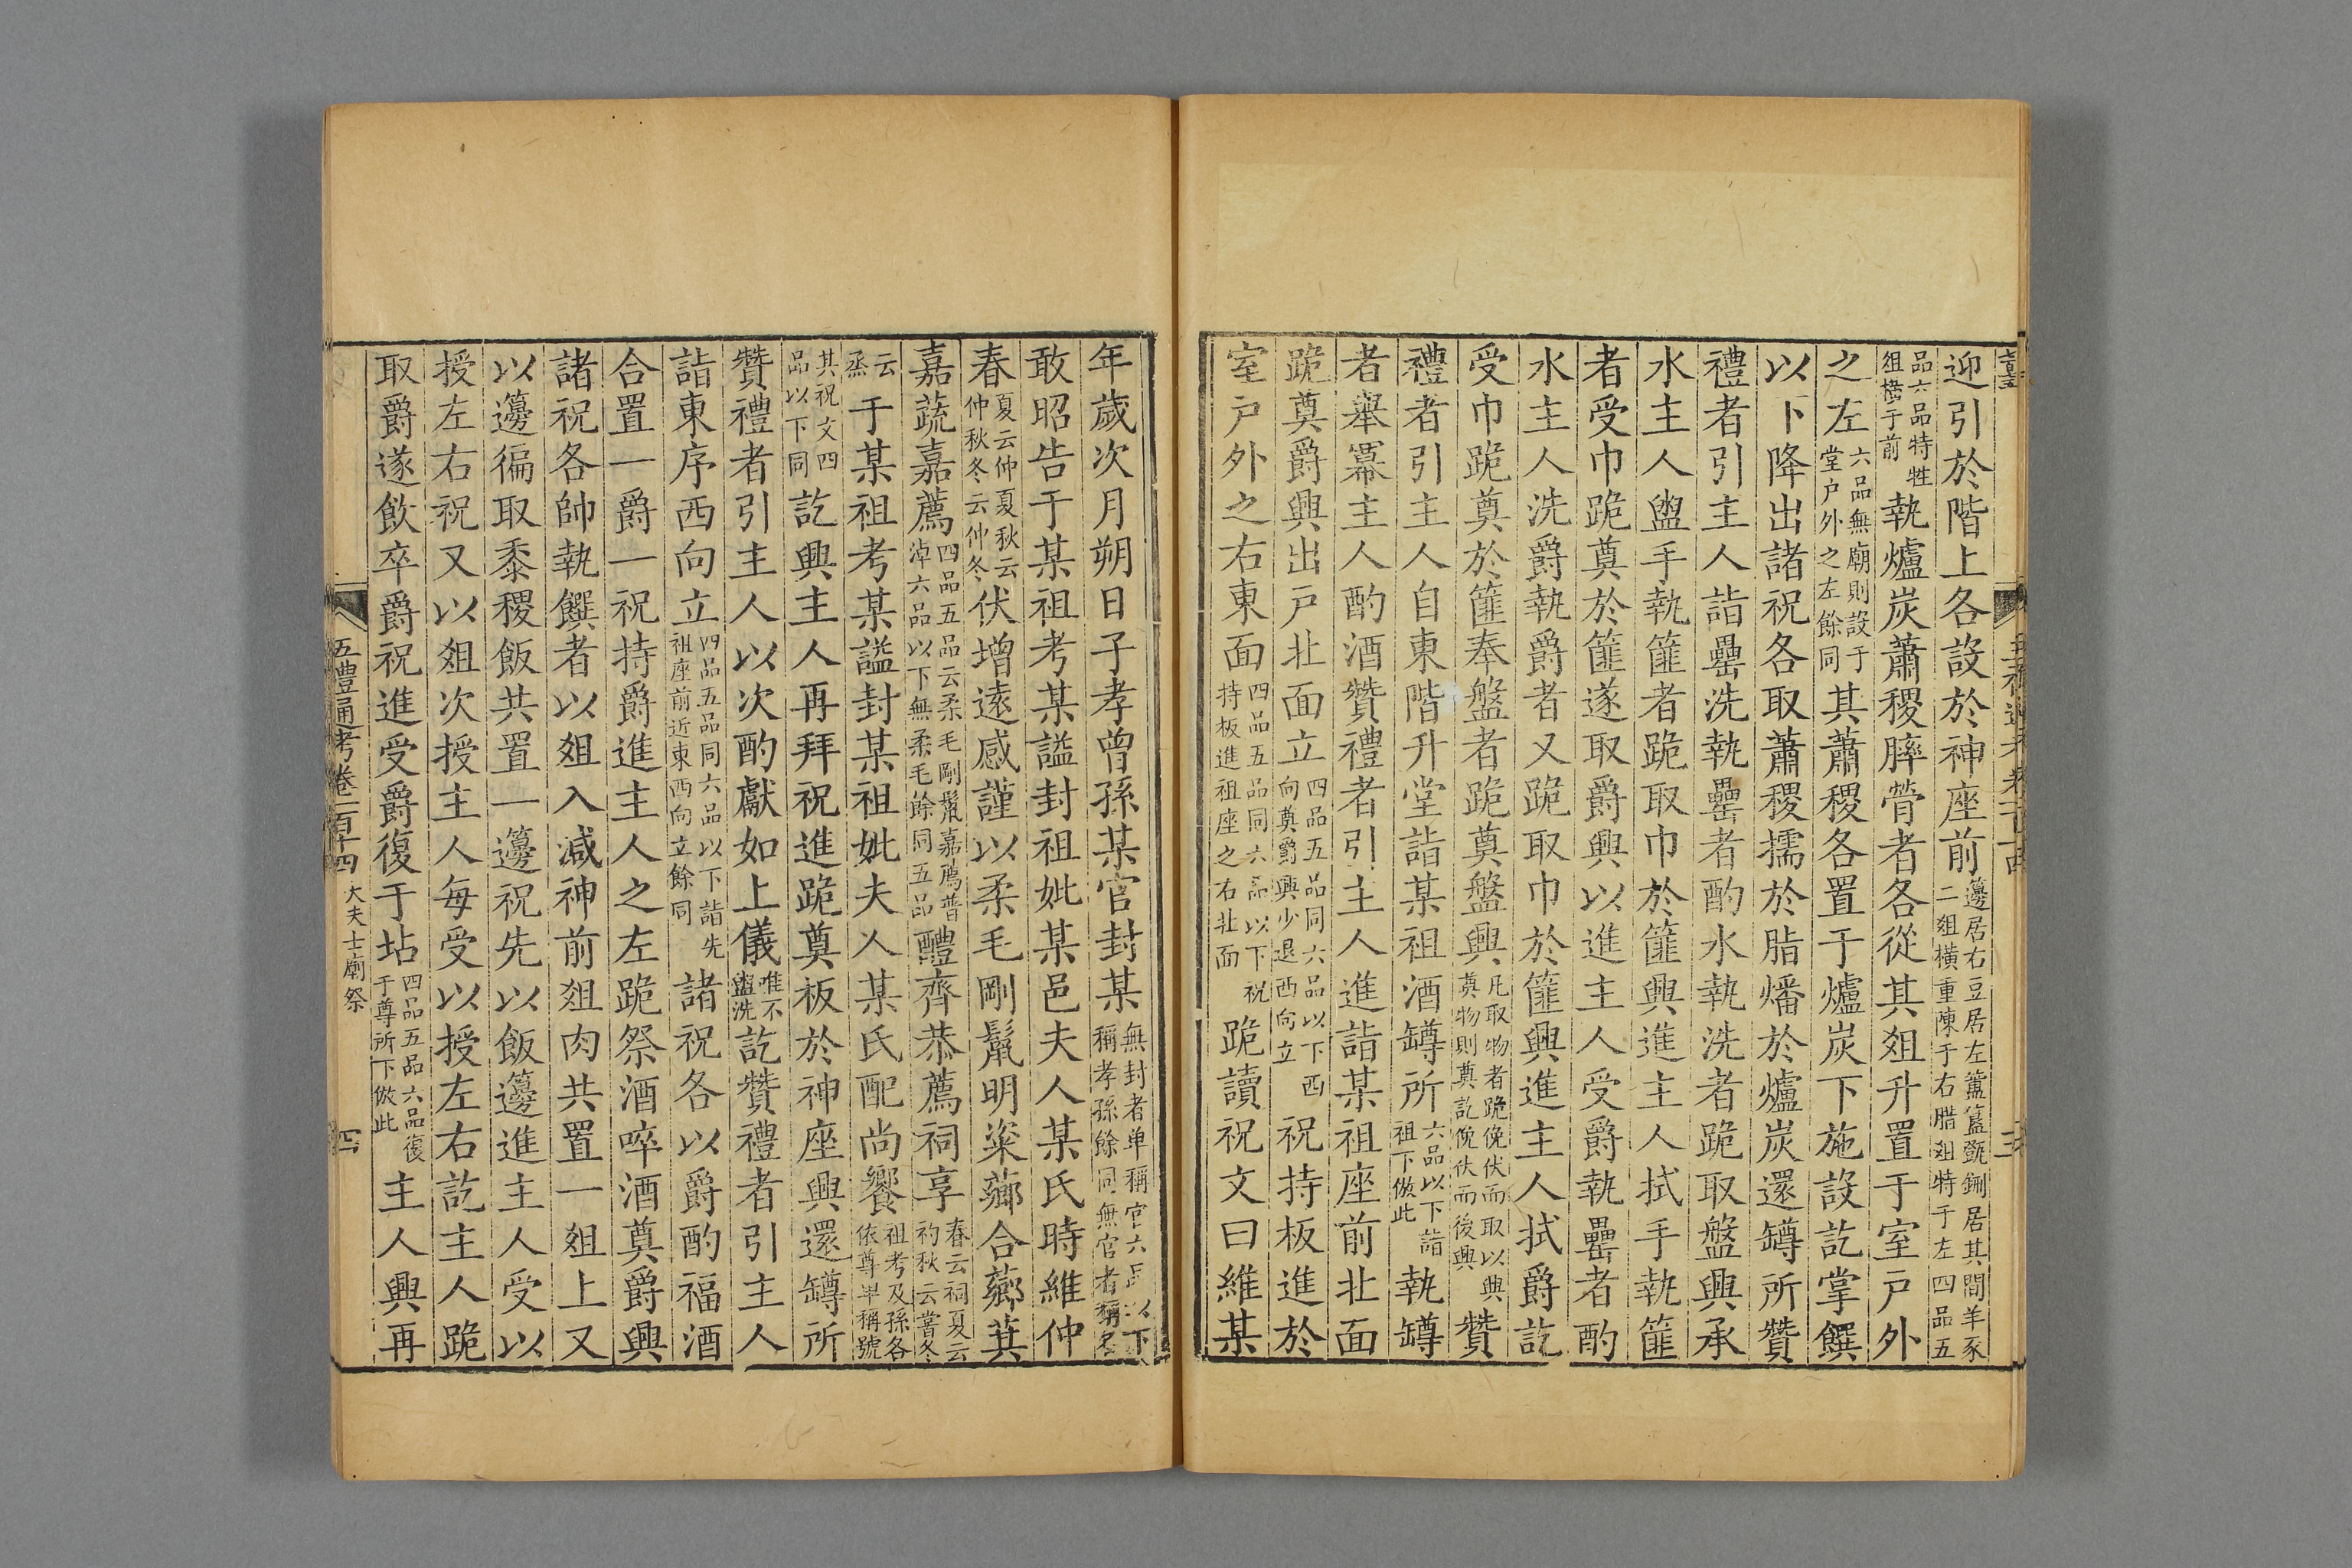 迎引於階上各設於神座前籩居右豆居左簠簋㽅鉶居其間羊豕二俎橫重陳于右腊俎特于左四品五
品六品特牲俎橫于前執爐炭蕭稷膟膋者各從其俎升置于室戶外
之左六品無廟則設于堂戶外之左餘同其蕭稷各置于爐炭下施設訖掌饌
以下降出諸祝各取蕭稷擩於脂燔於爐炭還罇所贊
禮者引主人詣罍洗執罍者酌水執洗者跪取盤興承
水主人盥手執篚者跪取巾於篚興進主人拭手執篚
者受巾跪奠於篚遂取爵興以進主人受爵執罍者酌
水主人洗爵執爵者又跪取巾於篚興進主人拭爵訖
受巾跪奠於篚奉盤者跪奠盤興凡取物者跪俛伏而取以興奠物則奠訖俛伏而後興贊
禮者引主人自東階升堂詣某祖酒罇所六品以下詣祖下倣此執罇
者舉冪主人酌酒贊禮者引主人進詣某祖座前北面
跪奠爵興出戶北面立四品五品同六品以下西向奠爵興少退西向立祝持板進於
室戶外之右東面四品五品同六品以下祝持板進祖座之右北面跪讀祝文曰維某
年歲次月朔日子孝曾孫某官封某無封者单稱官六品以下稱孝孫餘同無官者稱名
敢昭告于某祖考某謚封祖妣某邑夫人某氏時維仲
春夏云仲夏秋云仲秋冬云仲冬伏增遠感謹以柔毛剛鬛明粢薌合薌萁
嘉蔬嘉薦四品五品云柔毛剛鬛嘉薦普淖六品以下無柔毛餘同五品醴齊恭薦祠享春云祠夏云礿秋云嘗冬
云烝于某祖考某謚封某祖妣夫人某氏配尚饗祖考及孫各依尊卑稱號
其祝文四品以下同訖興主人再拜祝進跪奠板於神座興還罇所
贊禮者引主人以次酌獻如上儀唯不盥洗訖贊禮者引主人
詣東序西向立四品五品同六品以下詣先祖座前近東西向立餘同諸祝各以爵酌福酒
合置一爵一祝持爵進主人之左跪祭酒啐酒奠爵興
諸祝各帥執饌者以俎入減神前俎肉共置一俎上又
以籩徧取黍稷飯共置一籩祝先以飯籩進主人受以
授左右祝又以俎次授主人每受以授左右訖主人跪
取爵遂飲卒爵祝進受爵復于坫四品五品六品復于尊所下倣此主人興再
五禮通考卷二百十四 大夫士廟祭 四